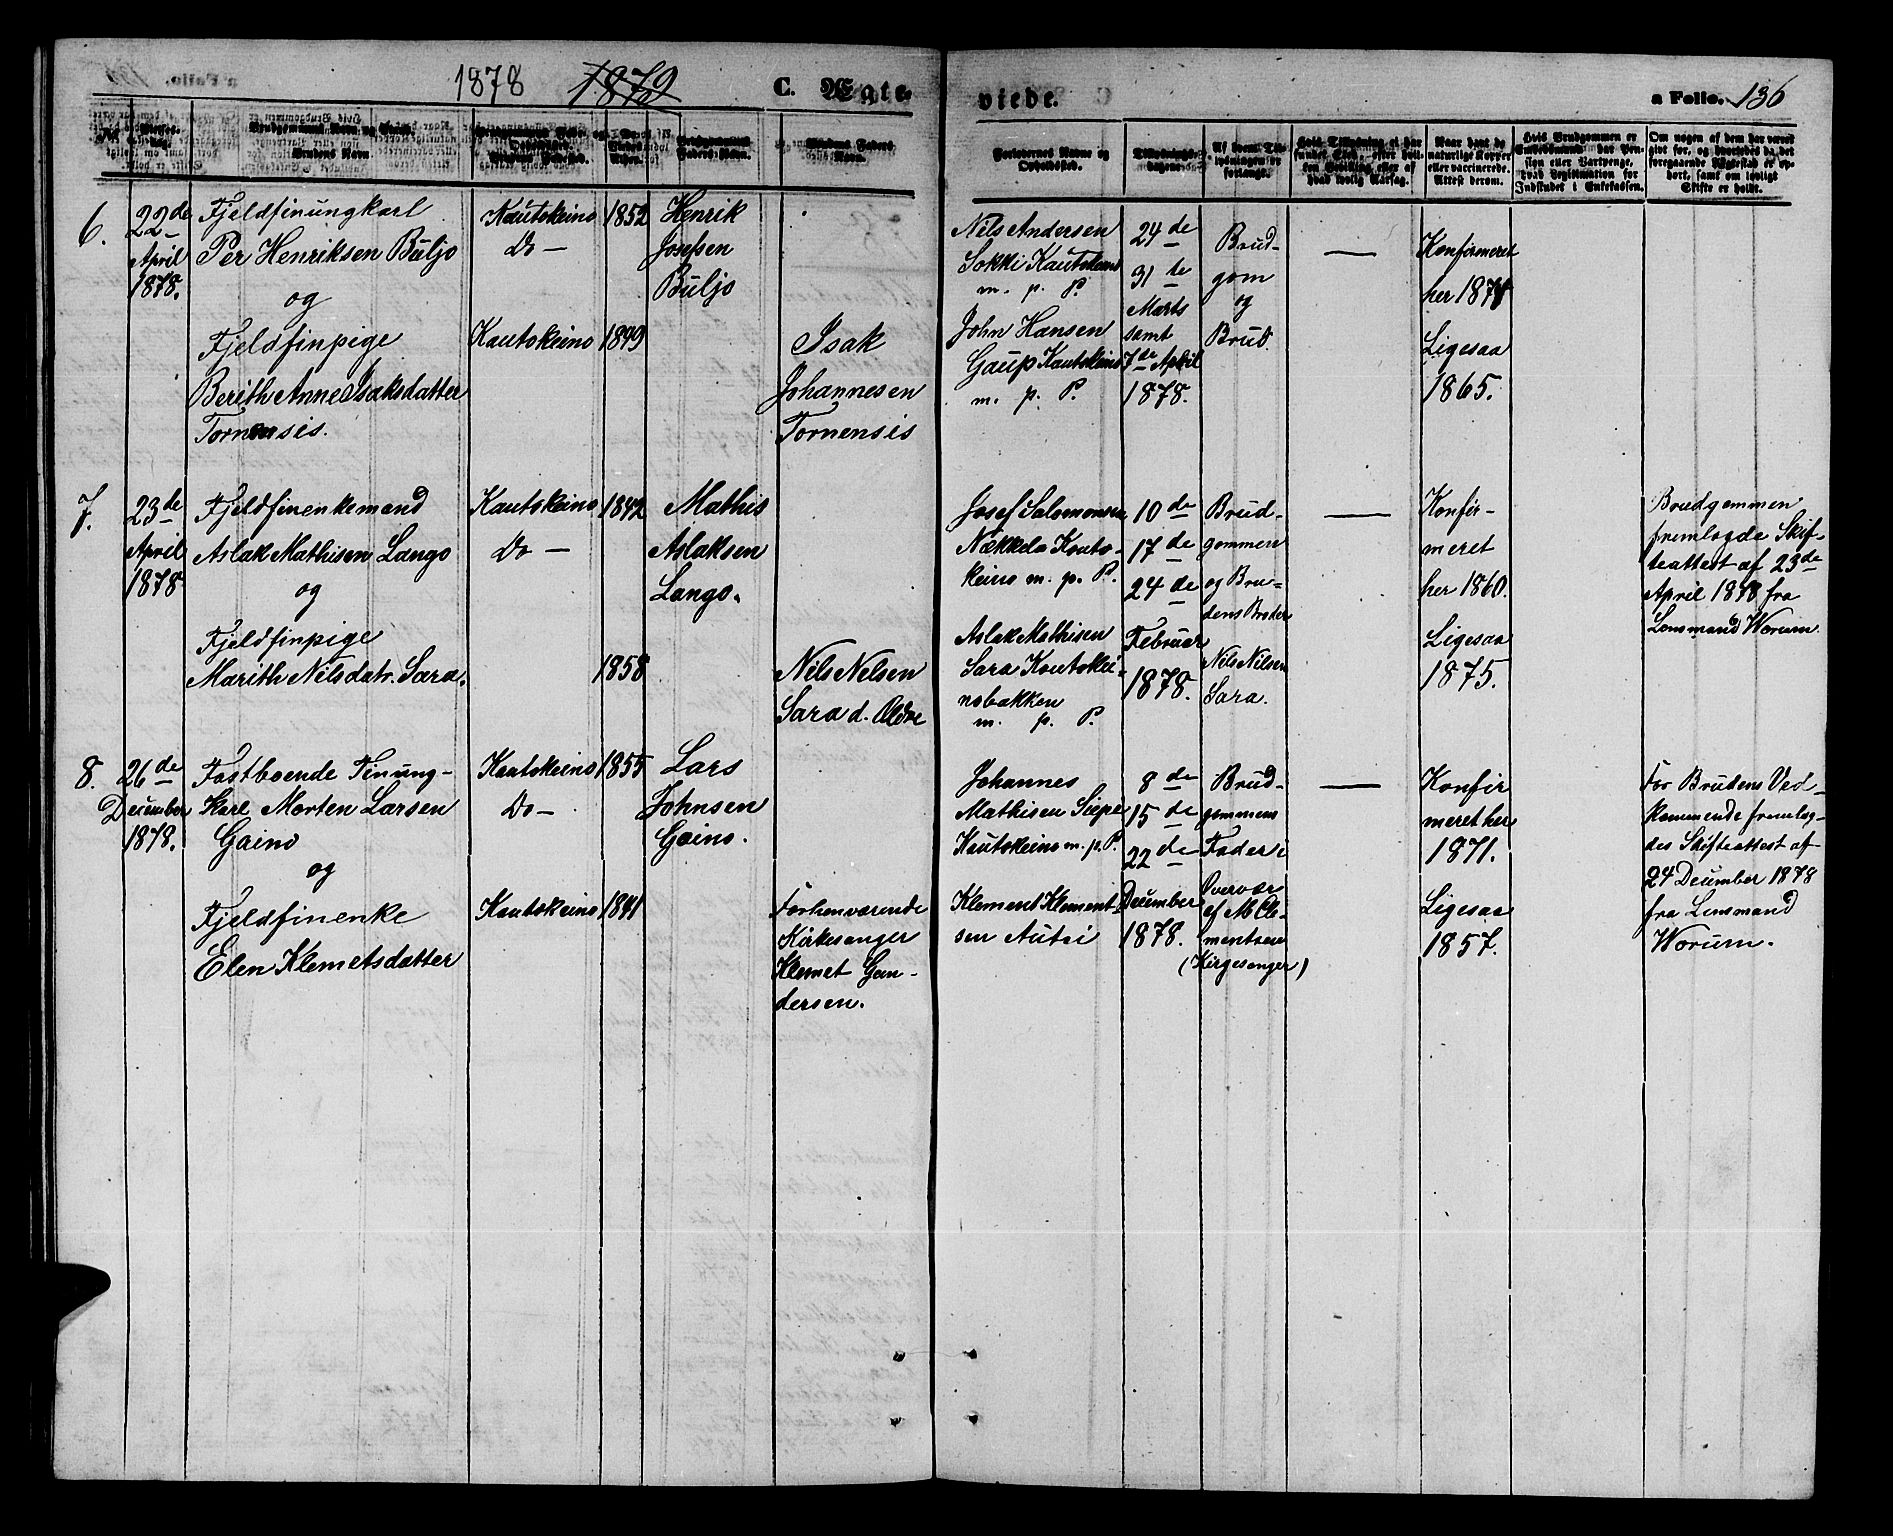 1878 1879 C.Ægte-
viede. a Folio. 136
Brudgommens Navn og
Brudens Navn.
Forlovernes Navne og
Opholdssted.
Om nogen af dem har været
gift før, og hvorledes da det
foregaaende Ægteskab er op-
hørt, samt om lovligt
Skifte er holdt.
6.
22de
April
1878.
Fjeldfinungkarl
Per Henriksen Buljo
og
Fjeldfinpige
Berith Anne Isaksdatter
Tornensis.
Kautokeino
Do —
Kautokeino
1852
1849
Henrik
Josefsen
Buljo
Isak
Johannesen
Tornensis
Nils Andersen
Sokki Kautokeino
m. p. P.
John Hansen
Gaup Kautokeino
m. p. P.
24de
31te
Marts
samt
7de April
1878.
Brud-
gom
og
Brud.
—
Konfirmeret
her 1871
Ligesaa
1865.
7.
23de
April
1878
Fjeldfinenkemand
Aslak Mathisen Lango
og
Fjeldfinpige
Marith Nilsdatr. Sara.
Kautokeino
Do —
1842
1858
Mathis
Aslaksen
Lango.
Nils Nilsen
Sara d. Ældre
Josef Salomonsen
Nækkela Kauto-
keino m. p. P.
Aslak Mathisen
Sara Kautokei-
nobakken
m. p. P.
10de
17de
24de
Februar
1878.
Brud-
gommen
og Bru-
dens Broder
Nils Nilsen
Sara.
—
Konfir-
meret
her 1860.
Ligesaa
1875.
Brudgommen
fremlagde Skif-
teattest af 23de
April 1878 fra
Lensmand Worum.
8.
26de
December
1878.
Fastboende Finung-
Karl Morten Larsen
Gaino
og
Fjeldfinenke
Elen Klemetsdatter
Kautokeino
Do —
Kautokeino
1855
1841
Lars
Johnsen
Gaino.
Forhenværende
Kirkesanger
Klemet Gun-
dersen.
Johannes
Mathisen Siepe
Kautokeino m. p. P.
Klement Klement-
sen Autsi
8de
15de
22de
December
1878.
Brud-
gommens
Fader i
Overvær
af M Cle-
mentsen
(Kirgesanger)
—
Konfir
meret her
1871.
Ligesaa
1857.
For Brudens Ved-
kommende fremlag-
des Skifteattest af
24 December 1878
fra Lensmand
Worum.